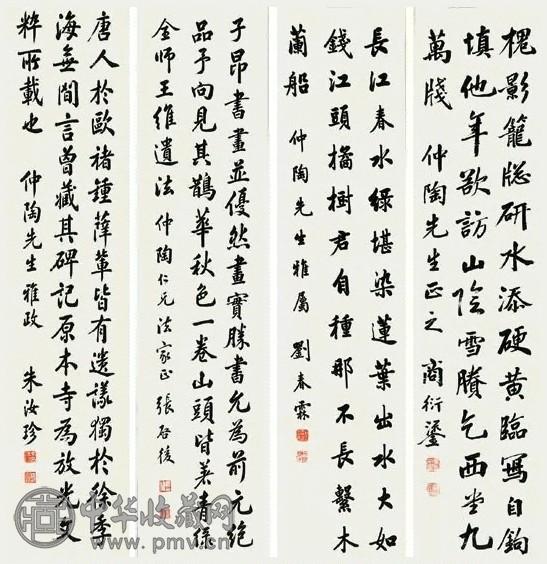 槐影籠牕研水添硬黄臨寫自鉤
填他年欲訪山陰雪賸乞西堂九
萬牋 仲陶先生正之 商衍鎏
長江春水綠堪染蓮葉出水大如
錢江頭橘樹君自種那不長繫木
蘭船 仲陶先生雅屬 劉春霖
子昂書畫並優然畫實勝書允為前元絶
品予向見其鵲華秋色一卷山頭皆著青綠
全師王維遺法 仲陶仁兄法家正 張啓後
唐人於歐褚鍾薛輩皆有遺議獨於徐季
海無間言曾藏其碑記原本寺為放光文
粹所載也 仲陶先生雅政 朱汝珍
中华收藏网
www.pmv.cn